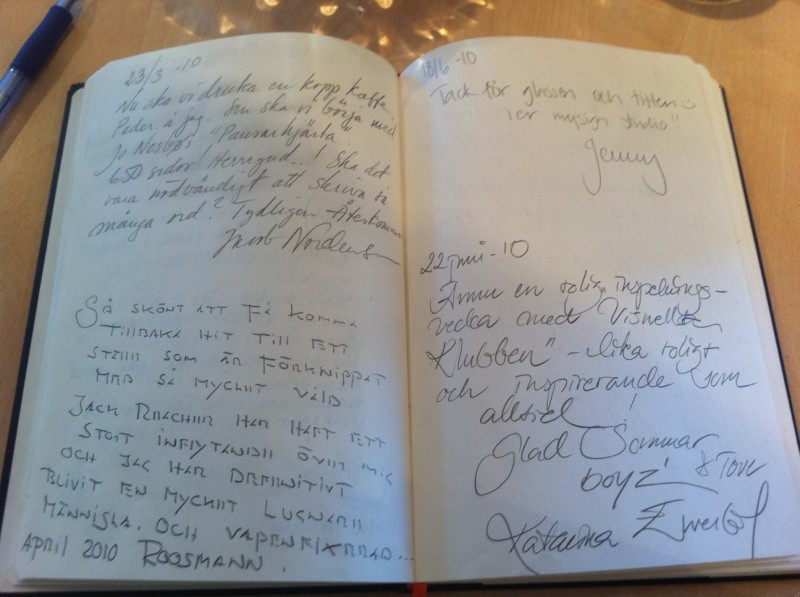 23/3 -10
Nu ska vi dricka en kopp kaffe.
Peder å jag. Sen ska vi börja med
Jo Nesbø's "Pansarhjärta".
650 sidor! Herregud..! Ska det
vara nödvändigt att skriva så
många ord? Tydligen. Återkommer
Jacob Nordenson
Så skönt att få komma
tillbaka hit till ett
ställe som är förknippat
med så mycket våld.
Jack Reacher har haft ett
stort inflytande över mig
och jag har definitivt
blivit en mycket lugnare
människa. Och vapenfixerad...
April 2010 Roosmann.
18/6 -10
Tack för glassen och titten
i er mysiga studio"
Jenny
22 juni -10
Ännu en rolig inspelnings-
vecka med "
Klubben" - lika roligt
och inspirerande som
alltid!
Glad Sommar
boyz' & Tove
Katarina Ewerlöf